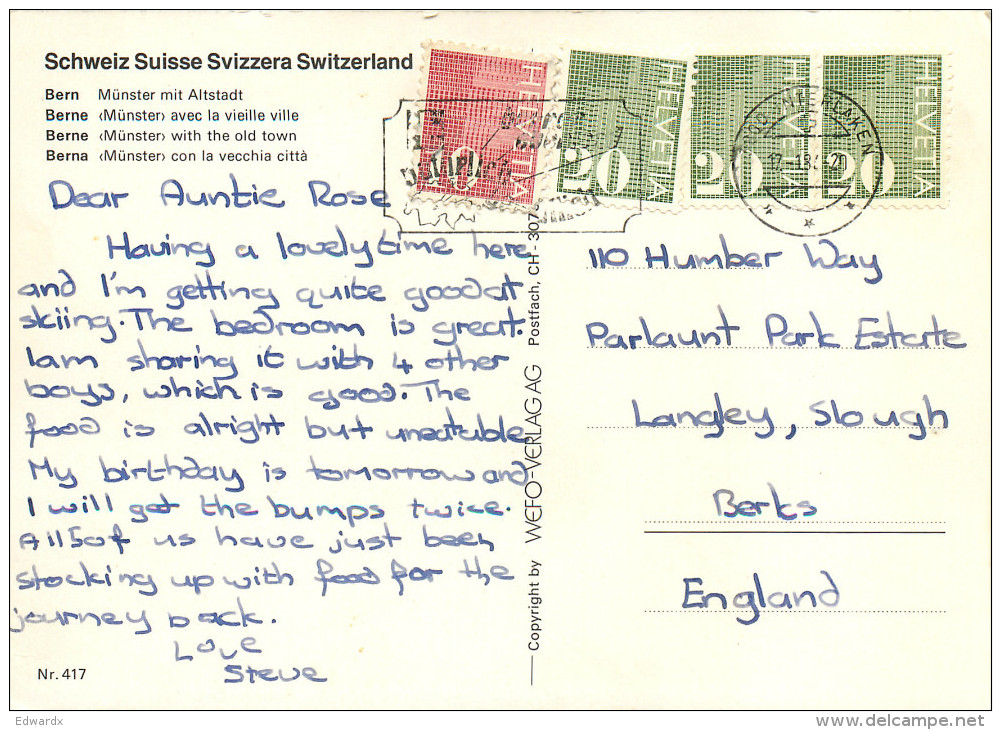 Schweiz Suisse Svizzera Switzerland
Bern Münster mit Altstadt
Berne ‹Münster› avec la vieille ville
Berne ‹Münster› with the old town
Berna ‹Münster› con la vecchia città
HELVETIA
HELVETIA 20
HELVETIA 20
HELVETIA 20
INTERLAKEN
Dear Auntie Rose
Having a lovely time here
and I'm getting quite good at
skiing. The bedroom is great.
I am sharing it with 4 other
boys, which is good. The
food is alright but uneatable
My birthday is tomorrow and
I will get the bumps twice.
All 5 of us have just been
stocking up with food for the
journey back.
Love
Steve
Nr. 417
Copyright by WEFO-VERLAG AG Postfach, CH - 307
110 Humber Way
Parlaunt Park Estate
Langley, Slough
Berks
England
Edwardx
delcampe.net